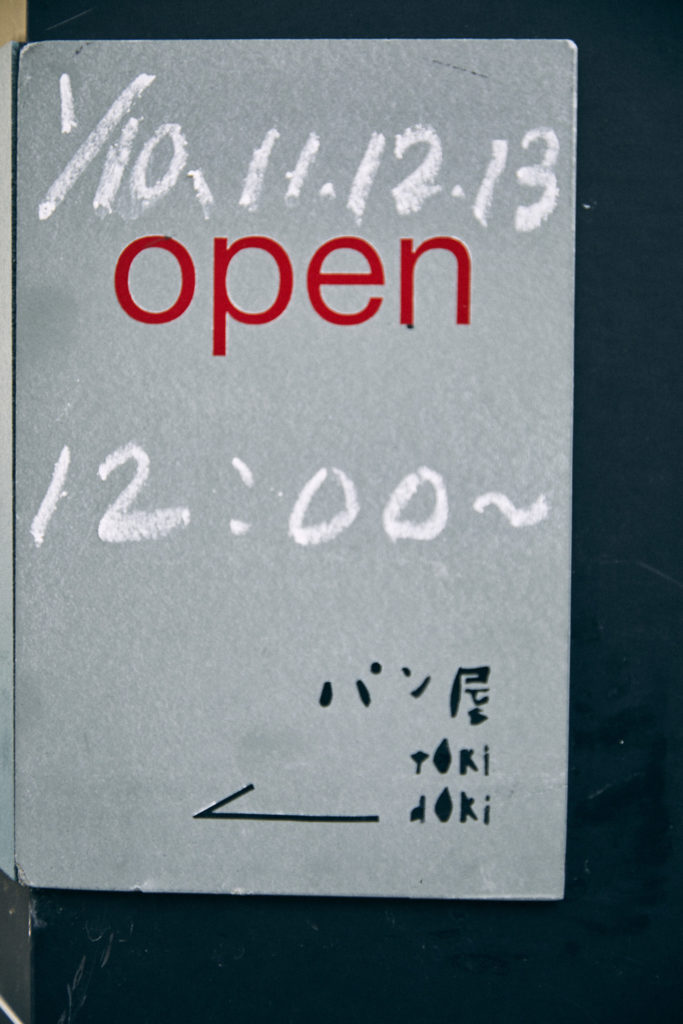 1/10、11.12.13
open
12:00~
パン屋
TOKi
dOKi